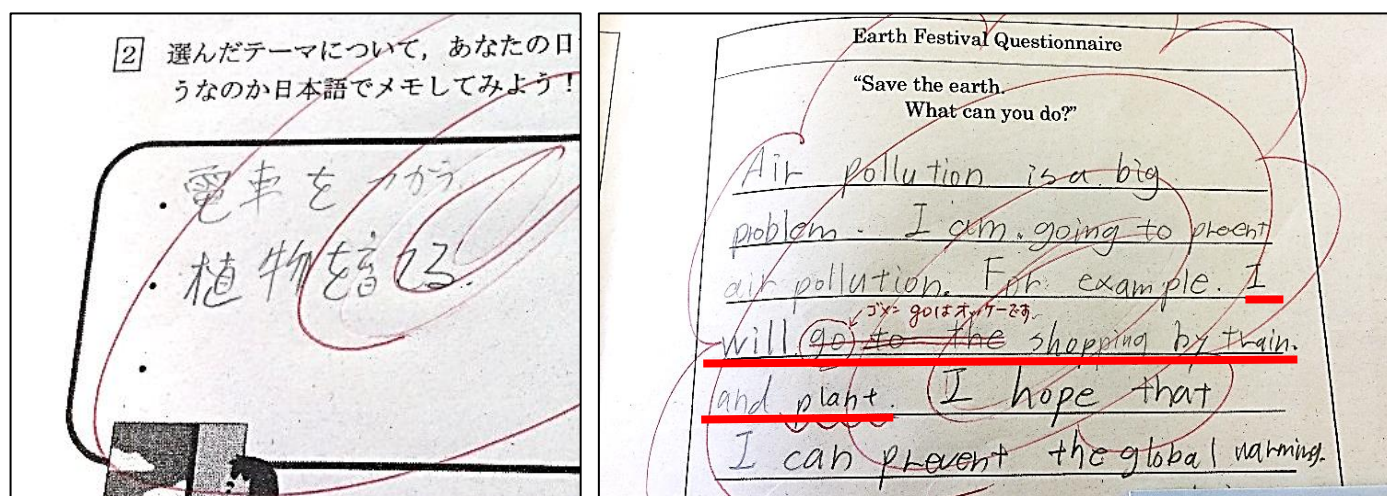 2 選んだテーマについて，あなたの日
うなのか日本語でメモしてみよう！
・電車をつかう
・植物を育てる
・
Earth Festival Questionnaire
“Save the earth.
What can you do?”
Air pollution is a big
problem. I am going to prevent
air pollution. For example. I
ゴメン goはオッケーです。
will go to the shopping by train.
and plant. I hope that
I can prevent the global warming.